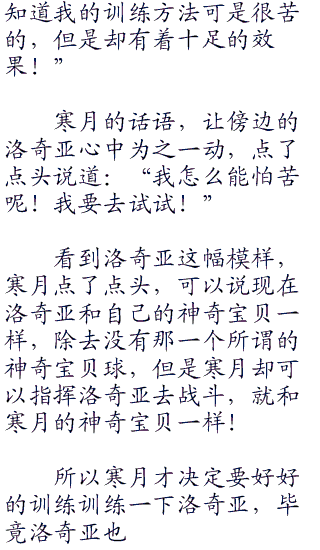 知道我的训练方法可是很苦
的，但是却有着十足的效
果！”
寒月的话语，让傍边的
洛奇亚心中为之一动，点了
点头说道：“我怎么能怕苦
呢！我要去试试！”
看到洛奇亚这幅模样，
寒月点了点头，可以说现在
洛奇亚和自己的神奇宝贝一
样，除去没有那一个所谓的
神奇宝贝球，但是寒月却可
以指挥洛奇亚去战斗，就和
寒月的神奇宝贝一样！
所以寒月才决定要好好
的训练训练一下洛奇亚，毕
竟洛奇亚也